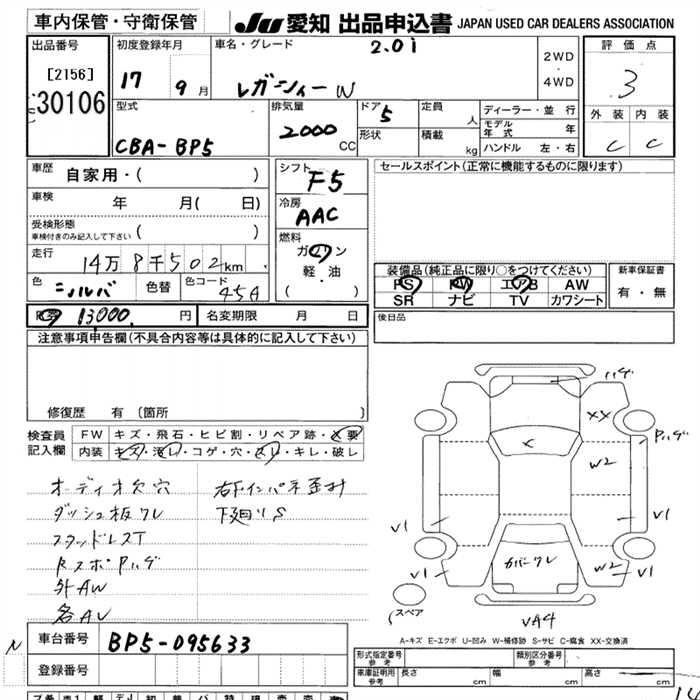 車内保管・守衛保管
JU 愛知 出品申込書 JAPAN USED CAR DEALERS ASSOCIATION
出品番号
[2156]
30106
初度登録年月
17 9 月
車名・グレード
2.0i
レガシィー W
2WD
・
4WD
評価点
3
外装 内装
C C
型式
CBA-BP5
排気量
2000 CC
ドア 5
形状
定員 人
積載 kg
ディーラー・並 行
モデル年式 年
ハンドル 左・右
車歴 自家用・( )
車検 年 月( 日)
受検形態
車検付きのみ記入して下さい ( )
走行 14万8千502km
色 シルバ 色替 色コード 45A
シフト
F5
冷房
AAC
燃料
ガソリン
軽・油
( )
セールスポイント(正常に機能するものに限ります)
装備品(純正品に限り○をつけてください)
PS PW エアB AW
SR ナビ TV カワシート
新車保証書
有・無
後日品
13000 円 名変期限 月 日
注意事項申告欄(不具合内容等は具体的に記入して下さい)
修復歴 有 (箇所 )
検査員記入欄
FW キズ・飛石・ヒビ割・リペア跡・X要
内装 キズ・汚レ・コゲ・穴・スレ・キレ・破レ
オーディオ欠 穴
ダッシュ板ワレ
スタッドレスT
RスポPハゲ
外AW
各AU
右下インパネ歪み
下廻りS
ハゲ
XX
Pハゲ
W2
V1
V1
V1
V1
W2
カバーワレ
スペア
VA4
A-キズ E-エクボ U-凹み W-補修跡 S-サビ C-腐食 XX-交換済
N
車台番号 BP5-095633
登録番号
形式指定番号 参考
類別区分番号 参考
車庫証明用 参考 長さ cm 幅 cm 高さ cm